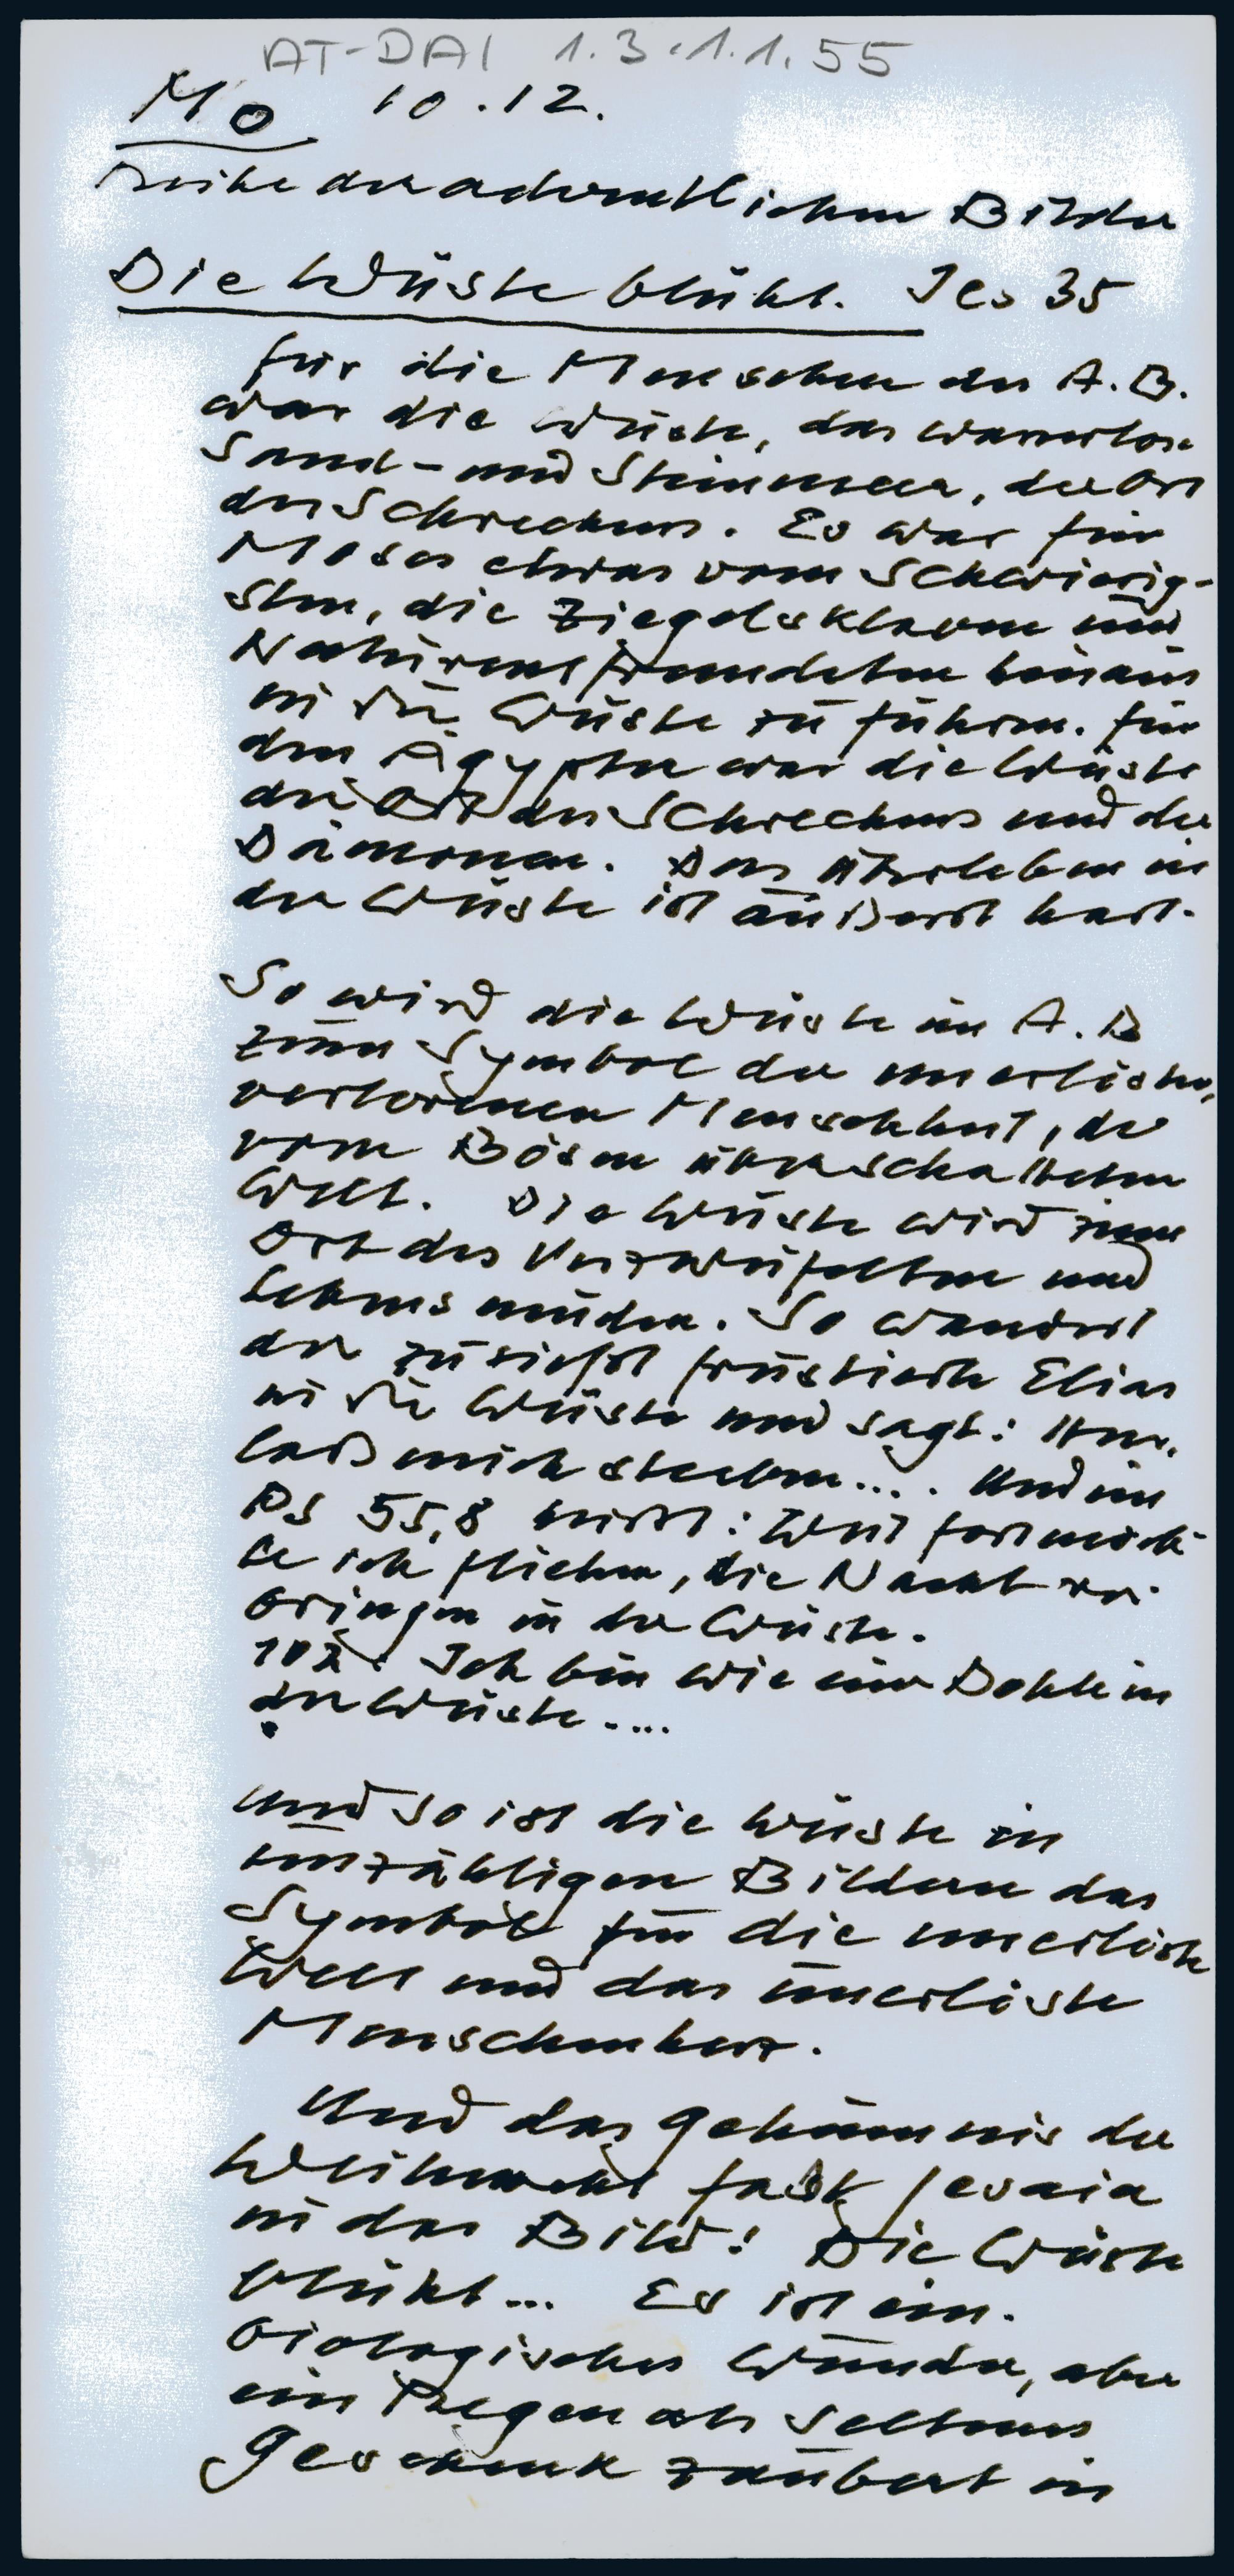 AT-DAI 1.3.1.1.55
Mo 10.12.
Reihe der adventlichen Bilder
Die Wüste blüht. Jes 35
für die Menschen des A.B.
war die Wüste, das wasserlose
Sand- und Steinmeer, der Ort
des Schreckens. Es war für
Moses etwas vom Schwierig-
sten, die Ziegelsklaven und
Naturentfremdeten hinaus
in die Wüste zu führen. für
den Ägypter war die Wüste
der Ort des Schreckens und der
Dämonen. Das Überleben in
der Wüste ist äußerst hart.
So wird die Wüste im A.B
zum Symbol der unerlösten,
verlorenen Menschheit, der
vom Bösen überschatteten
Welt. Die Wüste wird zum
Ort des Verzweifelten und
Lebensmüden. So wandert
der zutiefst frustrierte Elias
in die Wüste und sagt: Herr,
laß mich sterben.... Und im
Ps 55,8 heißt: Weit fort möch-
te ich fliehen, die Nacht ver-
bringen in der Wüste.
102: Ich bin wie eine Dohle in
der Wüste....
Und so ist die Wüste in
unzähligen Bildern das
Symbol für die unerlöste
Welt und das unerlöste
Menschenherz.
Und das Geheimnis der
Weihnacht faßt Jesaia
in das Bild! Die Wüste
blüht... Es ist ein
biologisches Wunder, aber
ein Regen als seltenes
Geschenk zaubert in